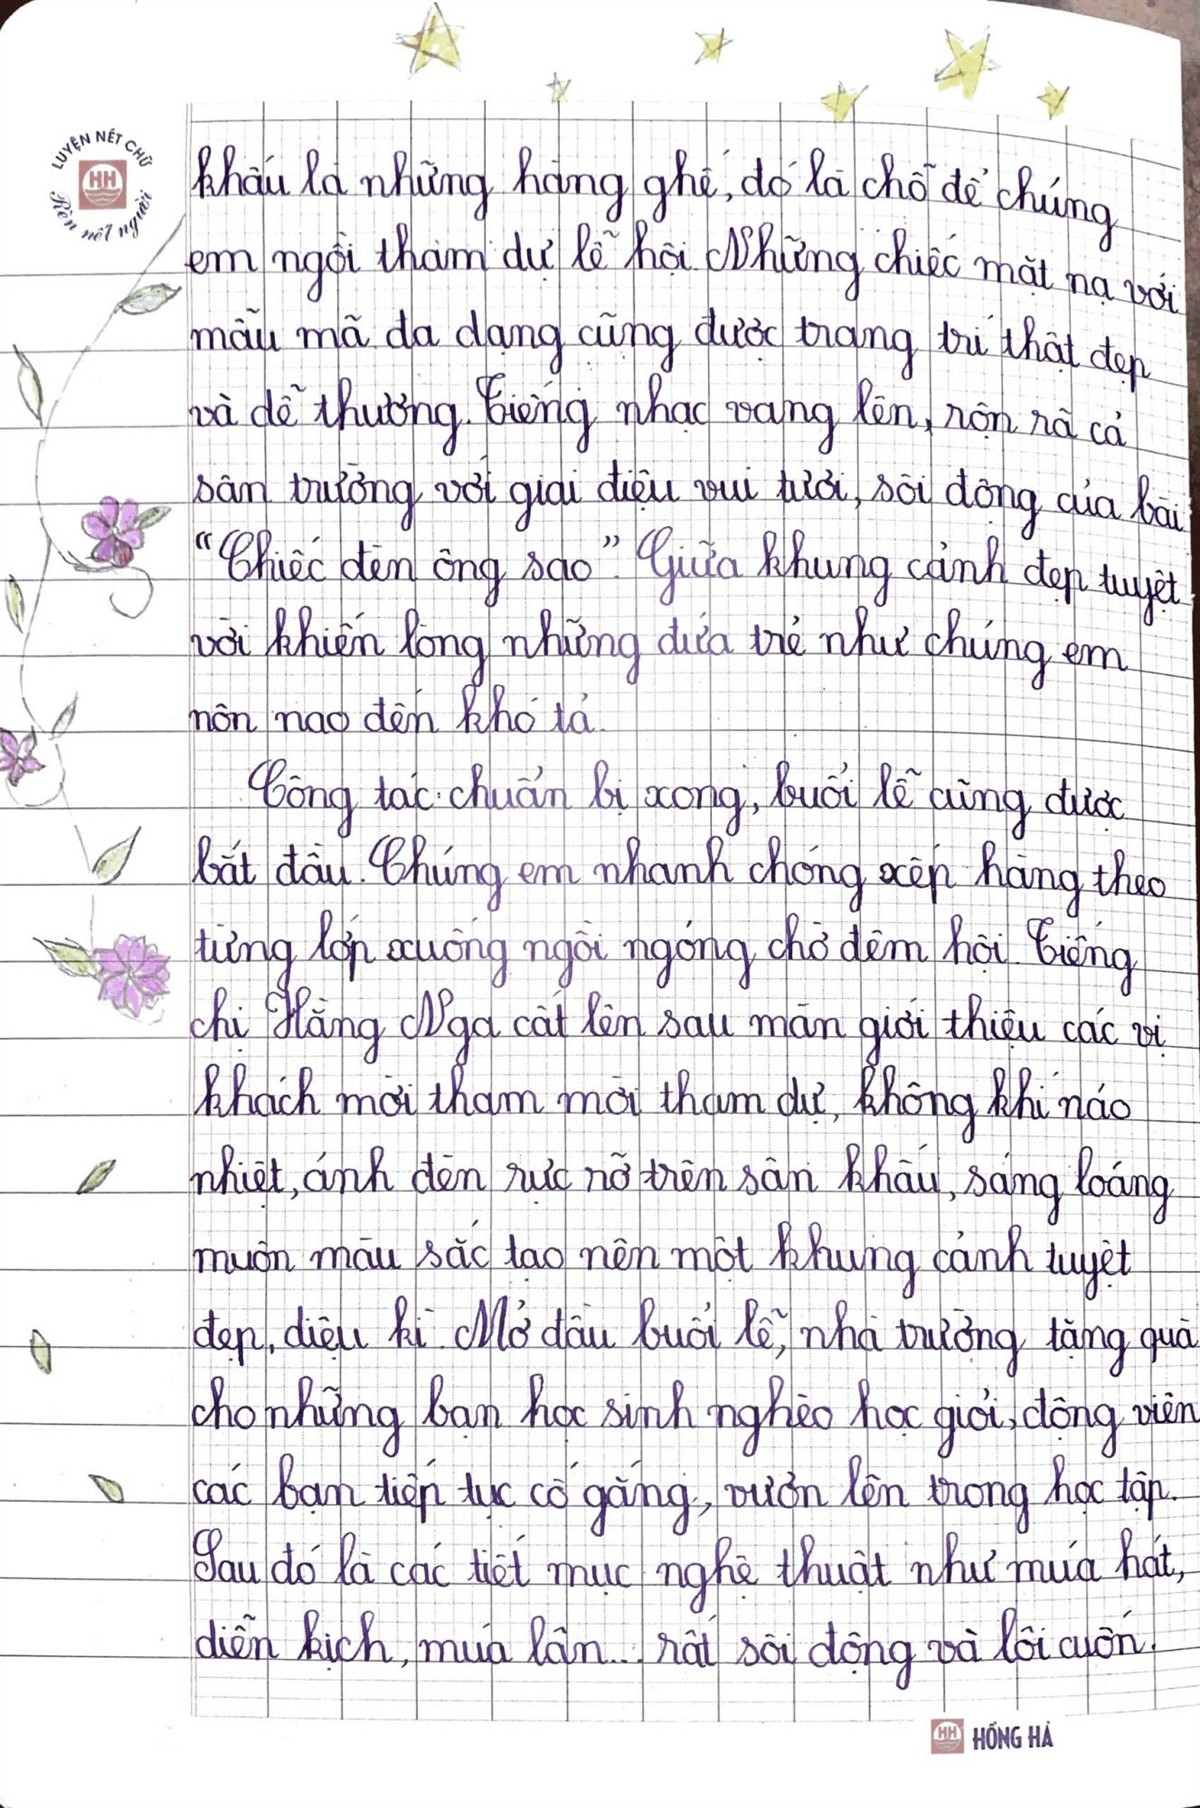 LUYỆN NÉT CHỮ
HH
Rèn nết người
khấu là những hàng ghế, đó là chỗ để chúng
em ngồi tham dự lễ hội. Những chiếc mặt nạ với
mẫu mã đa dạng cũng được trang trí thật đẹp
và dễ thương. Tiếng nhạc vang lên, rộn rã cả
sân trường với giai điệu vui tươi, sôi động của bài
“Chiếc đèn ông sao”. Giữa khung cảnh đẹp tuyệt
vời khiến lòng những đứa trẻ như chúng em
nôn nao đến khó tả.
Công tác chuẩn bị xong, buổi lễ cũng được
bắt đầu. Chúng em nhanh chóng xếp hàng theo
từng lớp xuống ngồi ngóng chờ đêm hội. Tiếng
chị Hằng Nga cất lên sau màn giới thiệu các vị
khách mời tham mời tham dự, không khí náo
nhiệt, ánh đèn rực rỡ trên sân khấu, sáng loáng
muôn màu sắc tạo nên một khung cảnh tuyệt
đẹp, diệu kì. Mở đầu buổi lễ, nhà trường tặng quà
cho những bạn học sinh nghèo học giỏi, động viên
các bạn tiếp tục cố gắng, vươn lên trong học tập.
Sau đó là các tiết mục nghệ thuật như múa hát,
diễn kịch, múa lân... rất sôi động và lôi cuốn.
HH HỒNG HÀ